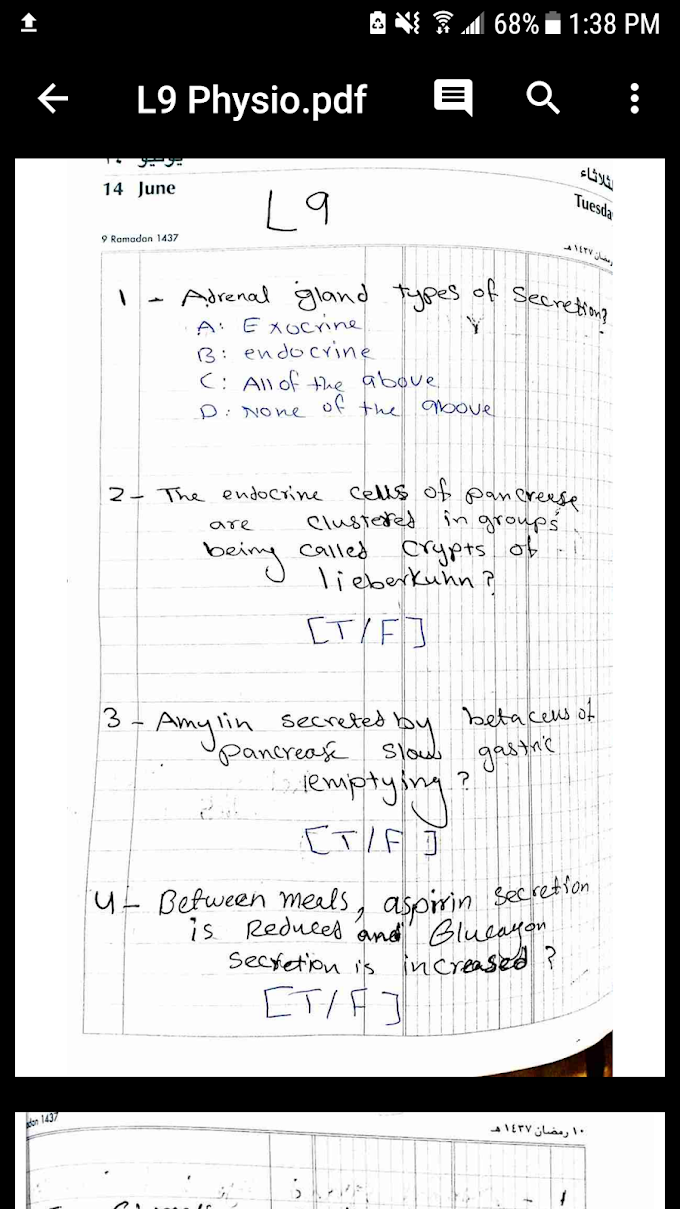 68% 1:38 PM
L9 Physio.pdf
يونيو
14 June
L9
9 Ramadan 1437
Tuesda
1 - Adrenal gland types of secretion?
A: Exocrine
B: endocrine
C: All of the above
D: None of the above
2 - The endocrine cells of pancreese
are clustered in groups
being called crypts of
lieberkuhn?
[T/F]
3 - Amylin secreted by beta cells of
pancrease slow gastric
emptying?
[T/F]
4 - Between meals, aspirin secretion
is Reduced and Glucagon
secretion is increased?
[T/F]
dan 1437
١٠ رمضان ١٤٣٧ هـ